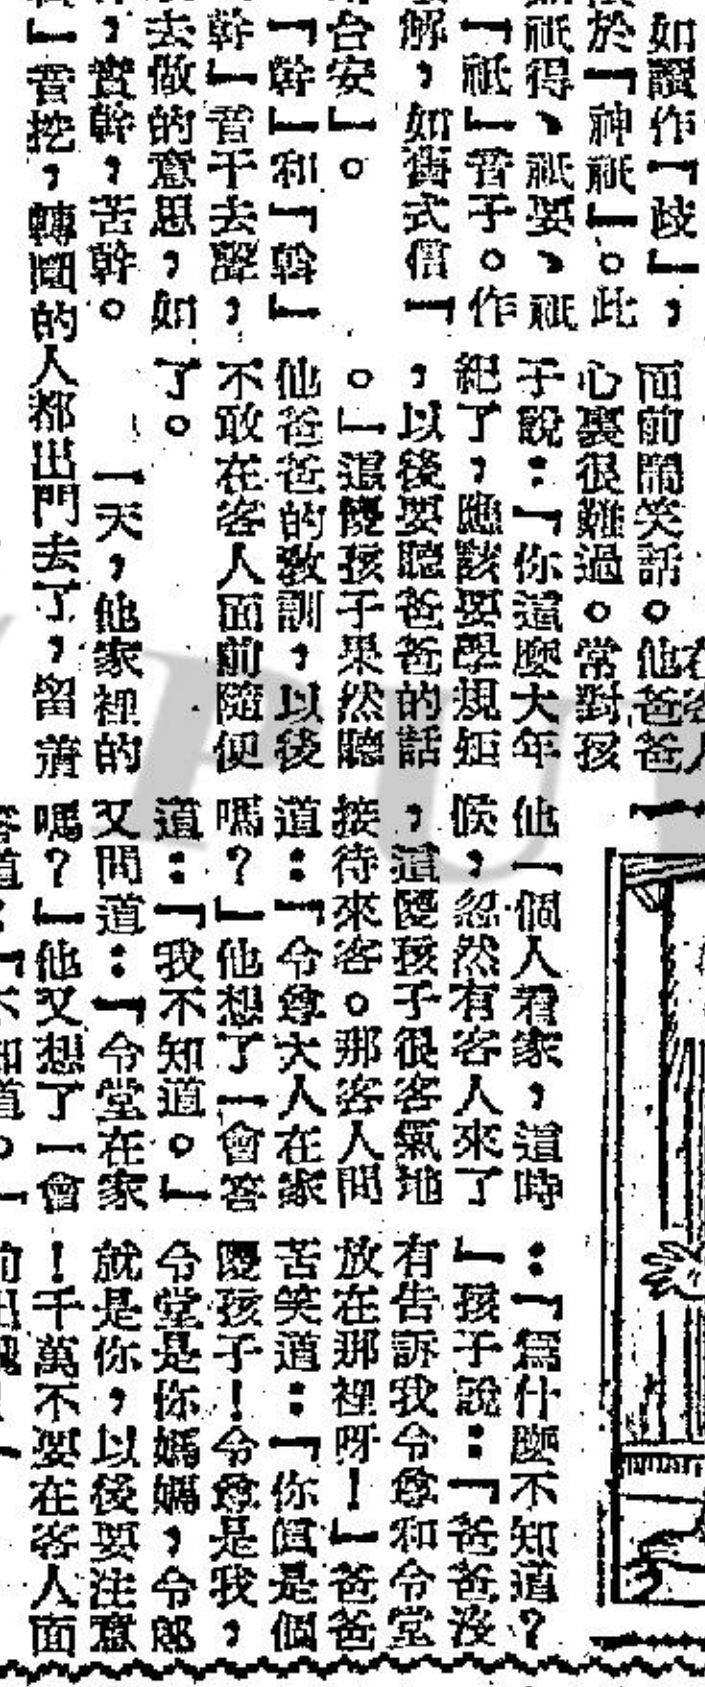 如讀作「歧」，
於「神祇」。此
祇得、祇要、祇
「祇」音子。作
解，如舊式信「
台安」。
「幹」和「斡」
幹」音干去聲，
去做的意思，如
，實幹，苦幹。
」音挖，轉圜的
在客人
面前鬧笑話。他爸爸
心裏很難過。常對孩
子說：「你這麼大年
紀了，應該要學規矩
，以後要聽爸爸的話
。」這傻孩子果然聽
他爸爸的教訓，以後
不敢在客人面前隨便
了。
一天，他家裡的
人都出門去了，留着
他一個人看家，這時
候，忽然有客人來了
，這傻孩子很客氣地
接待來客。那客人問
道：「令尊大人在家
嗎？」他想了一會答
道：「我不知道。」
又問道：「令堂在家
嗎？」他又想了一會
答道：「不知道。」
：「爲什麼不知道？
」孩子說：「爸爸沒
有告訴我令尊和令堂
放在那裡呀！」爸爸
苦笑道：「你眞是個
傻孩子！令尊是我，
令堂是你媽媽，令郎
就是你，以後要注意
！千萬不要在客人面
前出醜！」